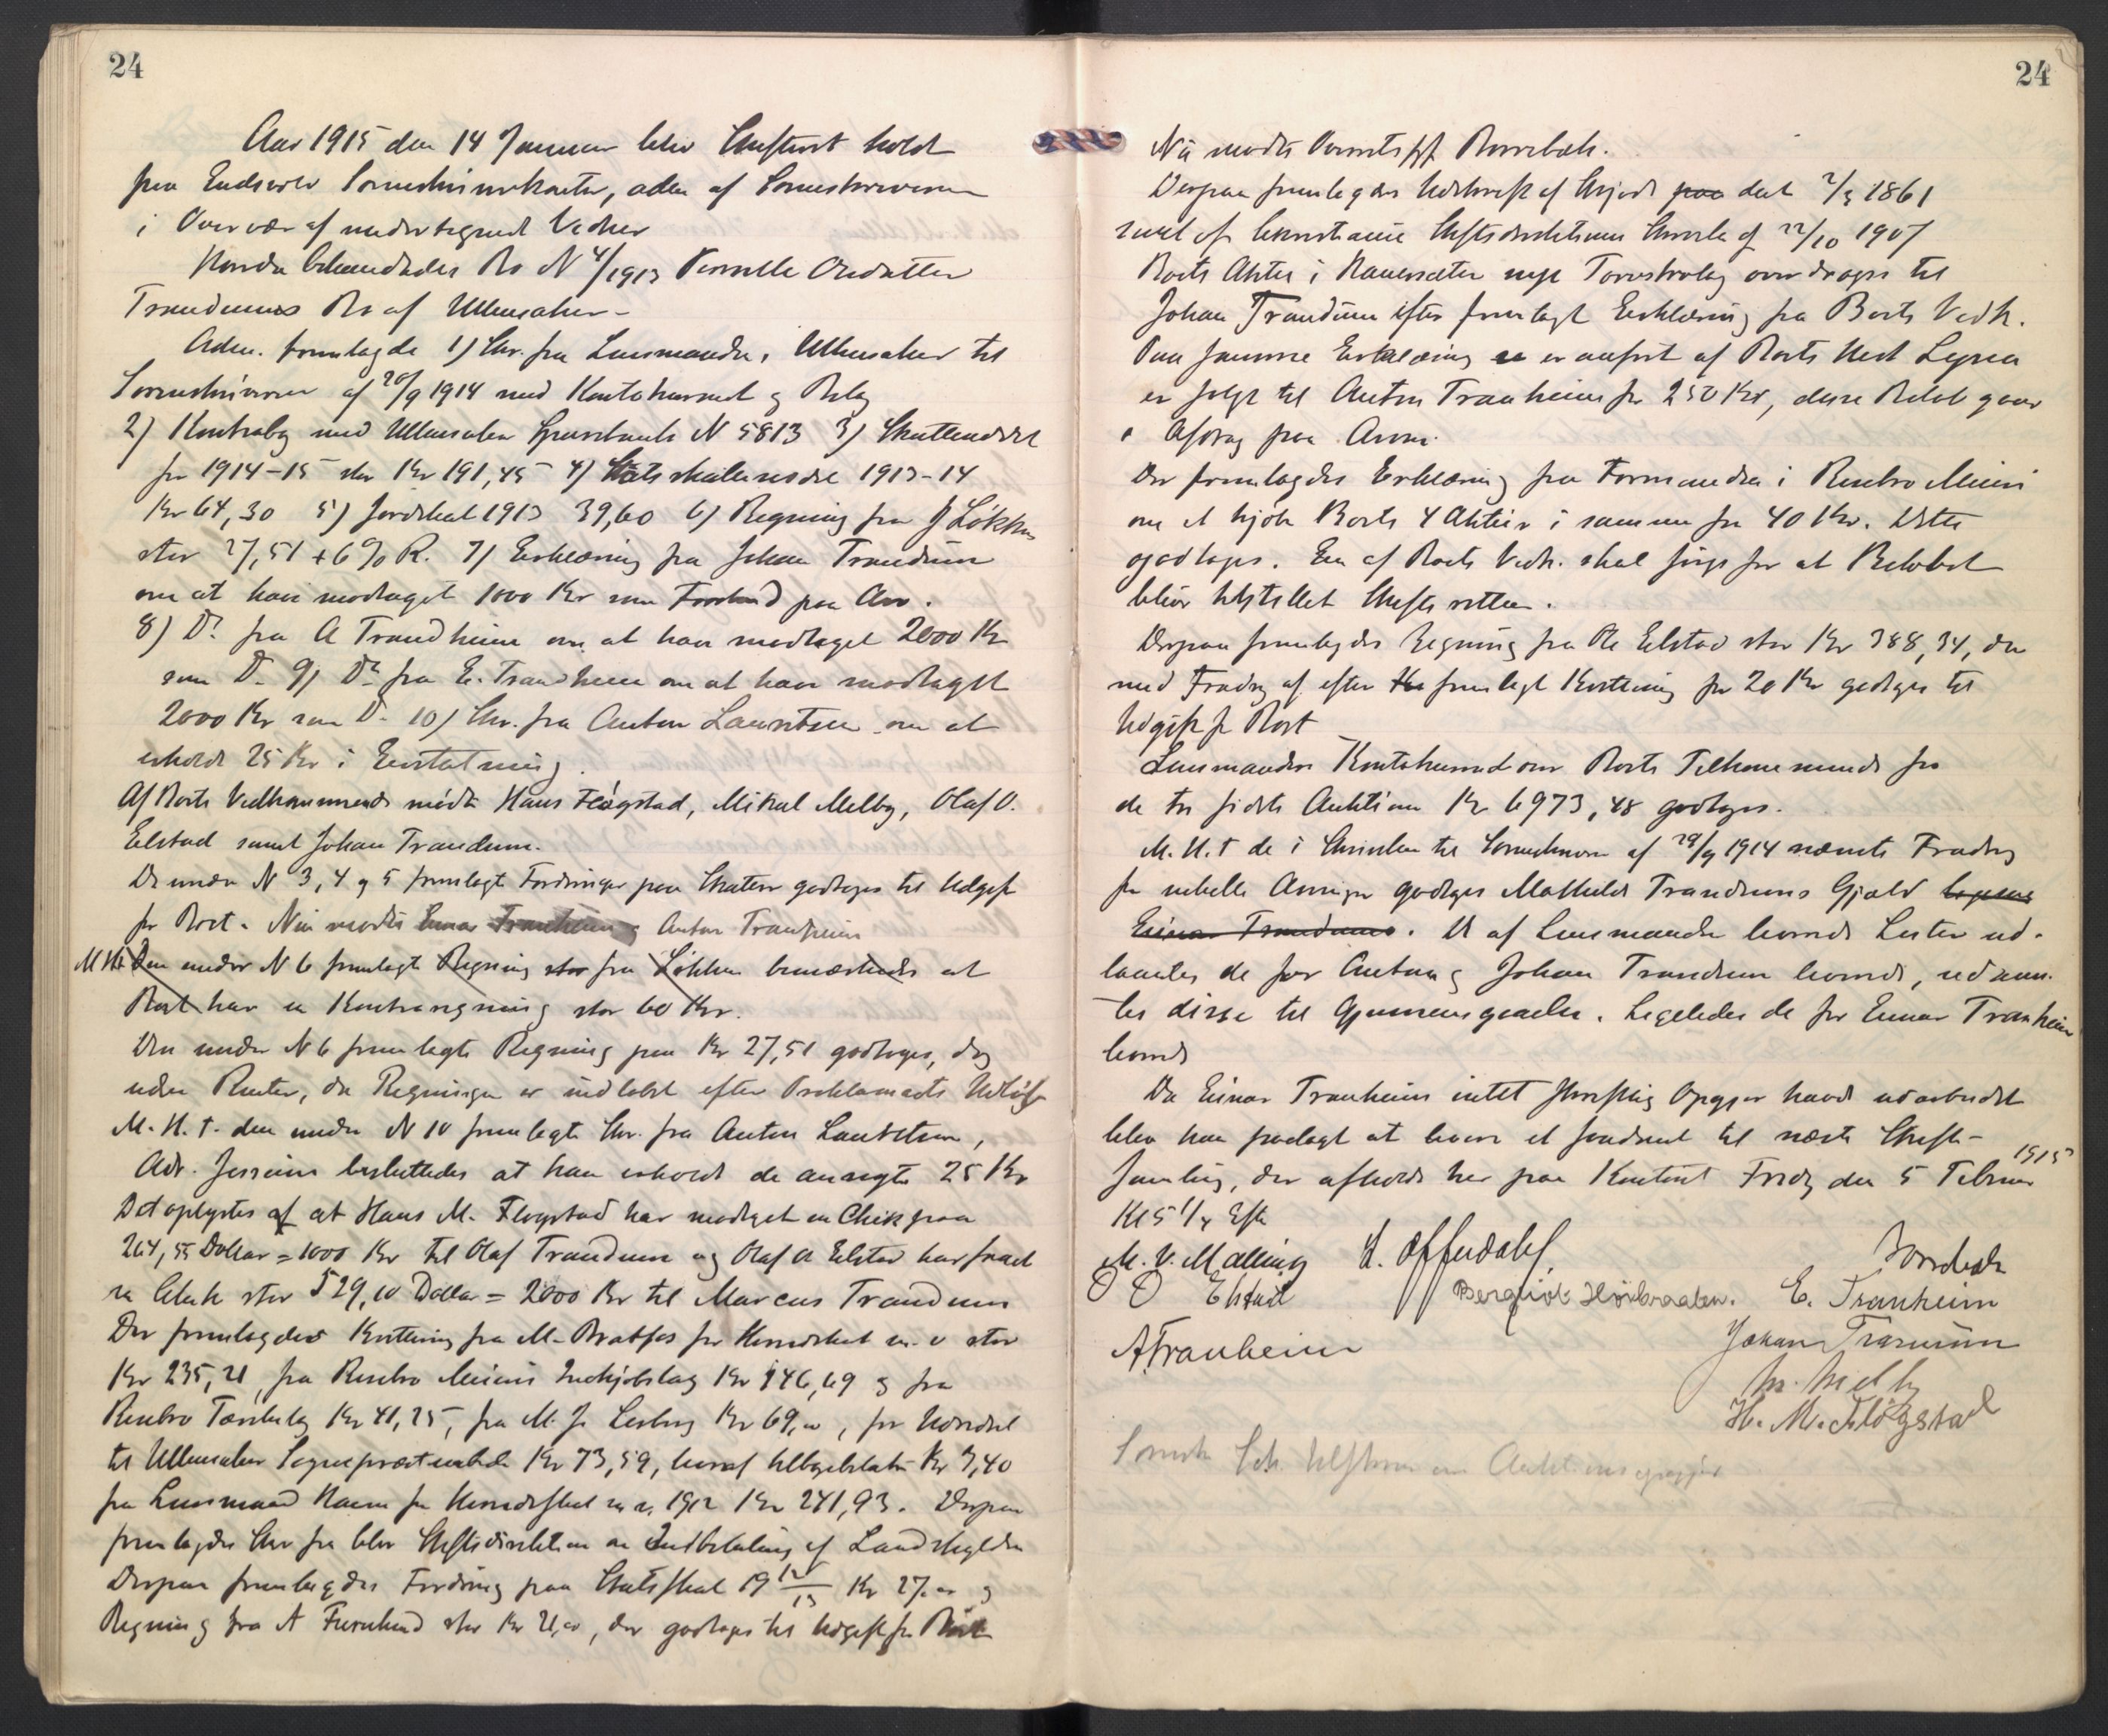 24
Aar 1915 den 14 Januar blev Skifteret holdt
paa Eidsvold Sorenskriverkontor, adm af Sorenskriveren
i Overvær af undertegnede Vidner
Hvorda behandledes Bo N 4/1913 Pernille Olsdatter
Trandums Bo af Ullensaker -
Adm. fremlagde 1) Skr. fra Lensmanden i Ullensaker til
Sorenskriveren af 28/9 1914 med Kontokurant og Bilag
2) Kontrabog med Ullensaker Sparebank N 5813 3) Skatteseddel
for 1914-15 stor Kr 191,45 4) Statsskatteseddel 1913-14
Kr 64,30 5) Jordskat 1913 39,60 6) Regning fra J Løkken
stor 27,51 + 6% R. 7) Erklæring fra Johan Trandum
om at have modtaget 1000 Kr som Forskud paa Arv.
8) Do fra A Trandheim om at have modtaget 2000 Kr
som Do 9) Do fra E. Trandheim om at have modtaget
2000 Kr som Do 10) Skr. fra Anton Lauritsen om at
erholde 25 Kr i Erstatning.
Af Boets Vedkommende mødte Hans Fløgstad, Mikal Melby, Olaf O.
Elstad samt Johan Trandum.
De under N 3, 4 og 5 fremlagte Fordringer paa Skatter godtages til Udgift
for Boet. Nu mødte Einar Tranheim og Anton Tranheim
M.H.t. Den under N 6 fremlagte Regning stor fra Løkken bemærkedes at
Boet har en Kontraregning stor 60 Kr.
Den under N 6 fremlagte Regning paa Kr 27,51 godtages, dog
uden Renter, da Regningen er indløbet efter Proklamaets Udløb
M.H.t. den under N 10 fremlagte Skr. fra Anton Lauritsen,
Adr. Jessheim besluttedes at han erholdt de ansøgte 25 Kr
Det oplystes af at Hans M. Fløgstad har modtaget en Chek paa
264,55 Dollar = 1000 Kr til Olaf Trandum og Olaf O Elstad har faaet
en Chek stor 529,10 Dollar = 2000 Kr til Marcus Trandum
Der fremlagdes Kvittering fra M. Bratfos for Herredskat m.v stor
Kr 235,21, fra Renbro Meieri Indkjøbslag Kr 146,69 og fra
Renbro Tærskelag Kr 41,25, fra M. J. Lesberg Kr 69,00, for
til Ullensaker Sogneprestembede Kr 73,59, heraf tilbagebetalt Kr 3,40
fra Lensmand Haern for Herredsskat m.v. 1912 Kr 241,93. Derpaa
fremlagdes Skr fra Skiftedirektion om Indbetaling af Landskylden
Derpaa fremlagdes Fordring paa Statsskat 19 12/13 Kr 27.00 og
Regning fra A Furulund stor Kr 21,00, der godtages til Udgift for Boet
24
Nu mødte Overretssgf Borrebæk.
Derpaa fremlagdes Udskrift af Skjøde paa dat 2/3 1861
samt af Skiftedirektionens Skrivelse af 22/10 1907
Boets Aktier i Torvstrølag overdrages til
Johan Trandum efter fremlagt Erklæring fra Boets Vedk.
Paa samme Erklæring er er anført af Boets Hest Lyna
er solgt til Anton Tranheim for 250 Kr, disse Beløb gaar
i Afdrag paa Arven.
Der fremlagdes Erklæring fra Formanden i Renbro Meieri
om at kjøbe Boets 4 Aktier i samme for 40 Kr. Dette
godtages. En af Boets Vedk. skal sørge for at Beløbet
bliver tilstillet Skifteretten.
Derpaa fremlagdes Regning fra Ole Elstad stor Kr 388,34, der
med Fradrag af efter Kr fremlagt Kvittering for 20 Kr godtages til
Udgift for Boet
Lensmandens Kontokurant over Boets Tilkommende fra
de to sidste Auktioner Kr 6973,48 godtages.
M.H.t de i Skrivelsen til Sorenskriveren af 28/9 1914 nævnte Fradrag
for enkelte Arvinger godtages Mathilde Trandums Gjæld
Einar Trandums. De af Lensmanden leverede Lister ud-
laantes de for Anton og Johan Trandum leverede, udlaan-
tes disse til Gjennemgaaelse. Ligeledes de for Einar Tranheim
leverede
Da Einar Tranheim intet skriftlig Opgjør havde udarbeidet
blev han paalagt at levere et saadant til næste Skifte-
samling, der afholdes her paa Kontoret Fredag den 5 Februar 1915
Kl 5 1/4 Eft
M. V. Malling H. Offerdahl. Borrebæk
O O Elstad Bergljot Høibraaten. E. Tranheim
A Tranheim Johan Trandum
M. Melby
H. M. Fløgstad